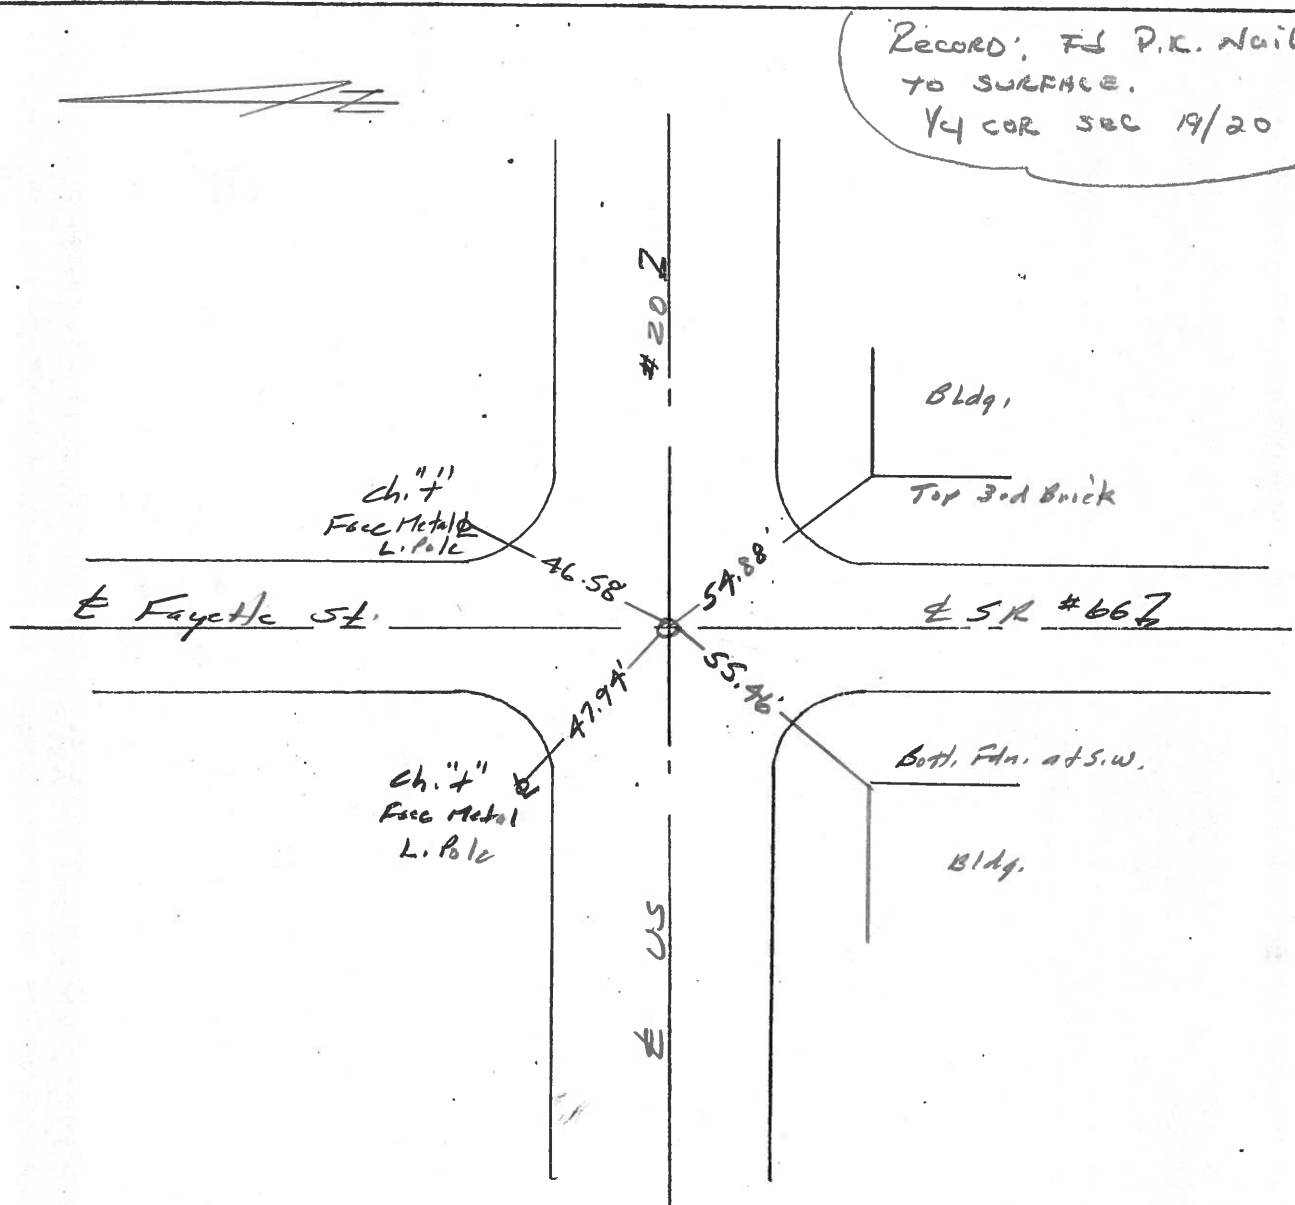 RECORD: Fd P.K. Nail
TO SURFACE.
1/4 COR SEC 19/20
N
# 20
Bldg.
Ch. "+"
Face Metal
L. Pole
Top 3rd Brick
46.58
54.88'
℄ Fayette St.
℄ SR #66
47.94'
55.46'
Ch. "+"
Face Metal
L. Pole
Bott. Fdn. at S.W.
Bldg.
℄ US